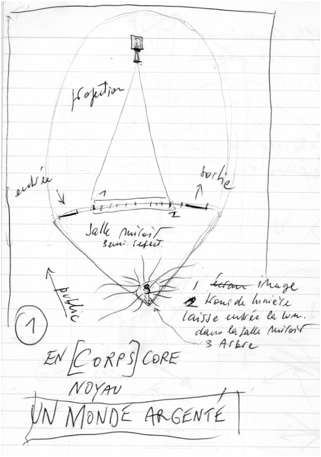 projection
entrée
sortie
1
2
salle miroir
semi-refect.
3
public
1 écran image
2 trous de lumière
laisse entrée la lum.
dans la salle miroir
3 Arbre
1
EN [CORPS] CORE
NOYAU
UN MONDE ARGENTÉ